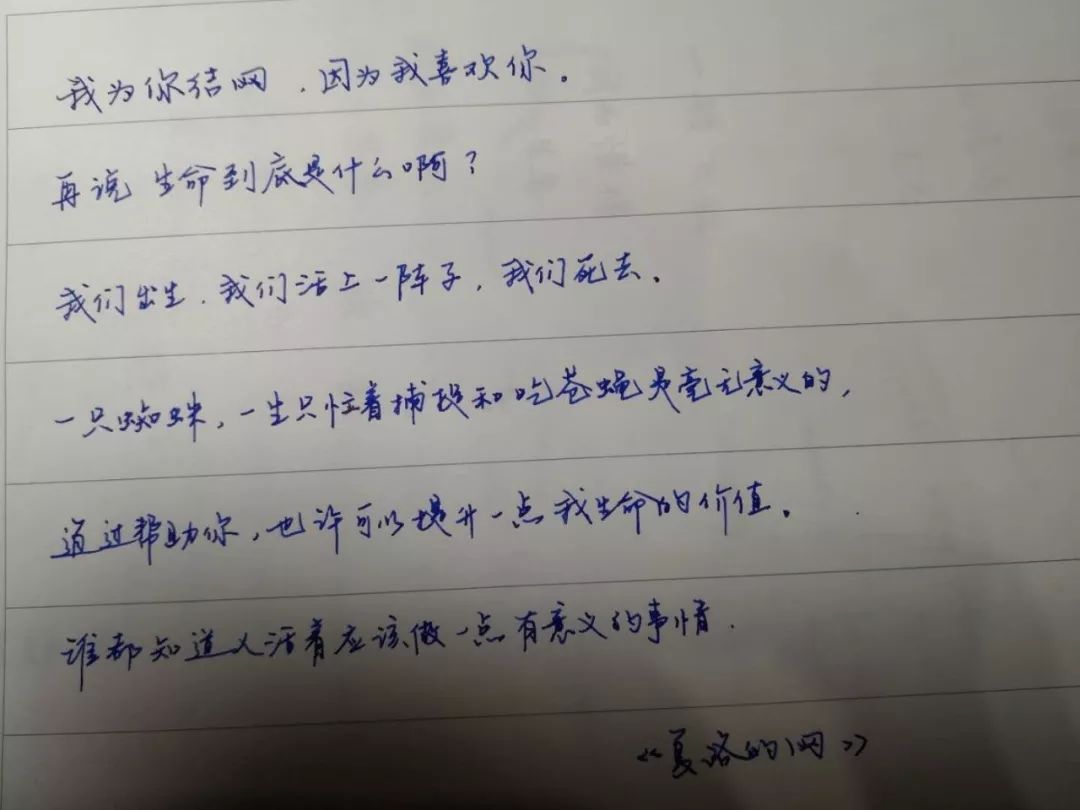 我为你结网，因为我喜欢你。
再说生命到底是什么啊？
我们出生，我们活上一阵子，我们死去。
一只蜘蛛，一生只忙着捕捉和吃苍蝇是毫无意义的，
通过帮助你，也许可以提升一点我生命的价值。
谁都知道人活着应该做一点有意义的事情.
《夏洛的网》